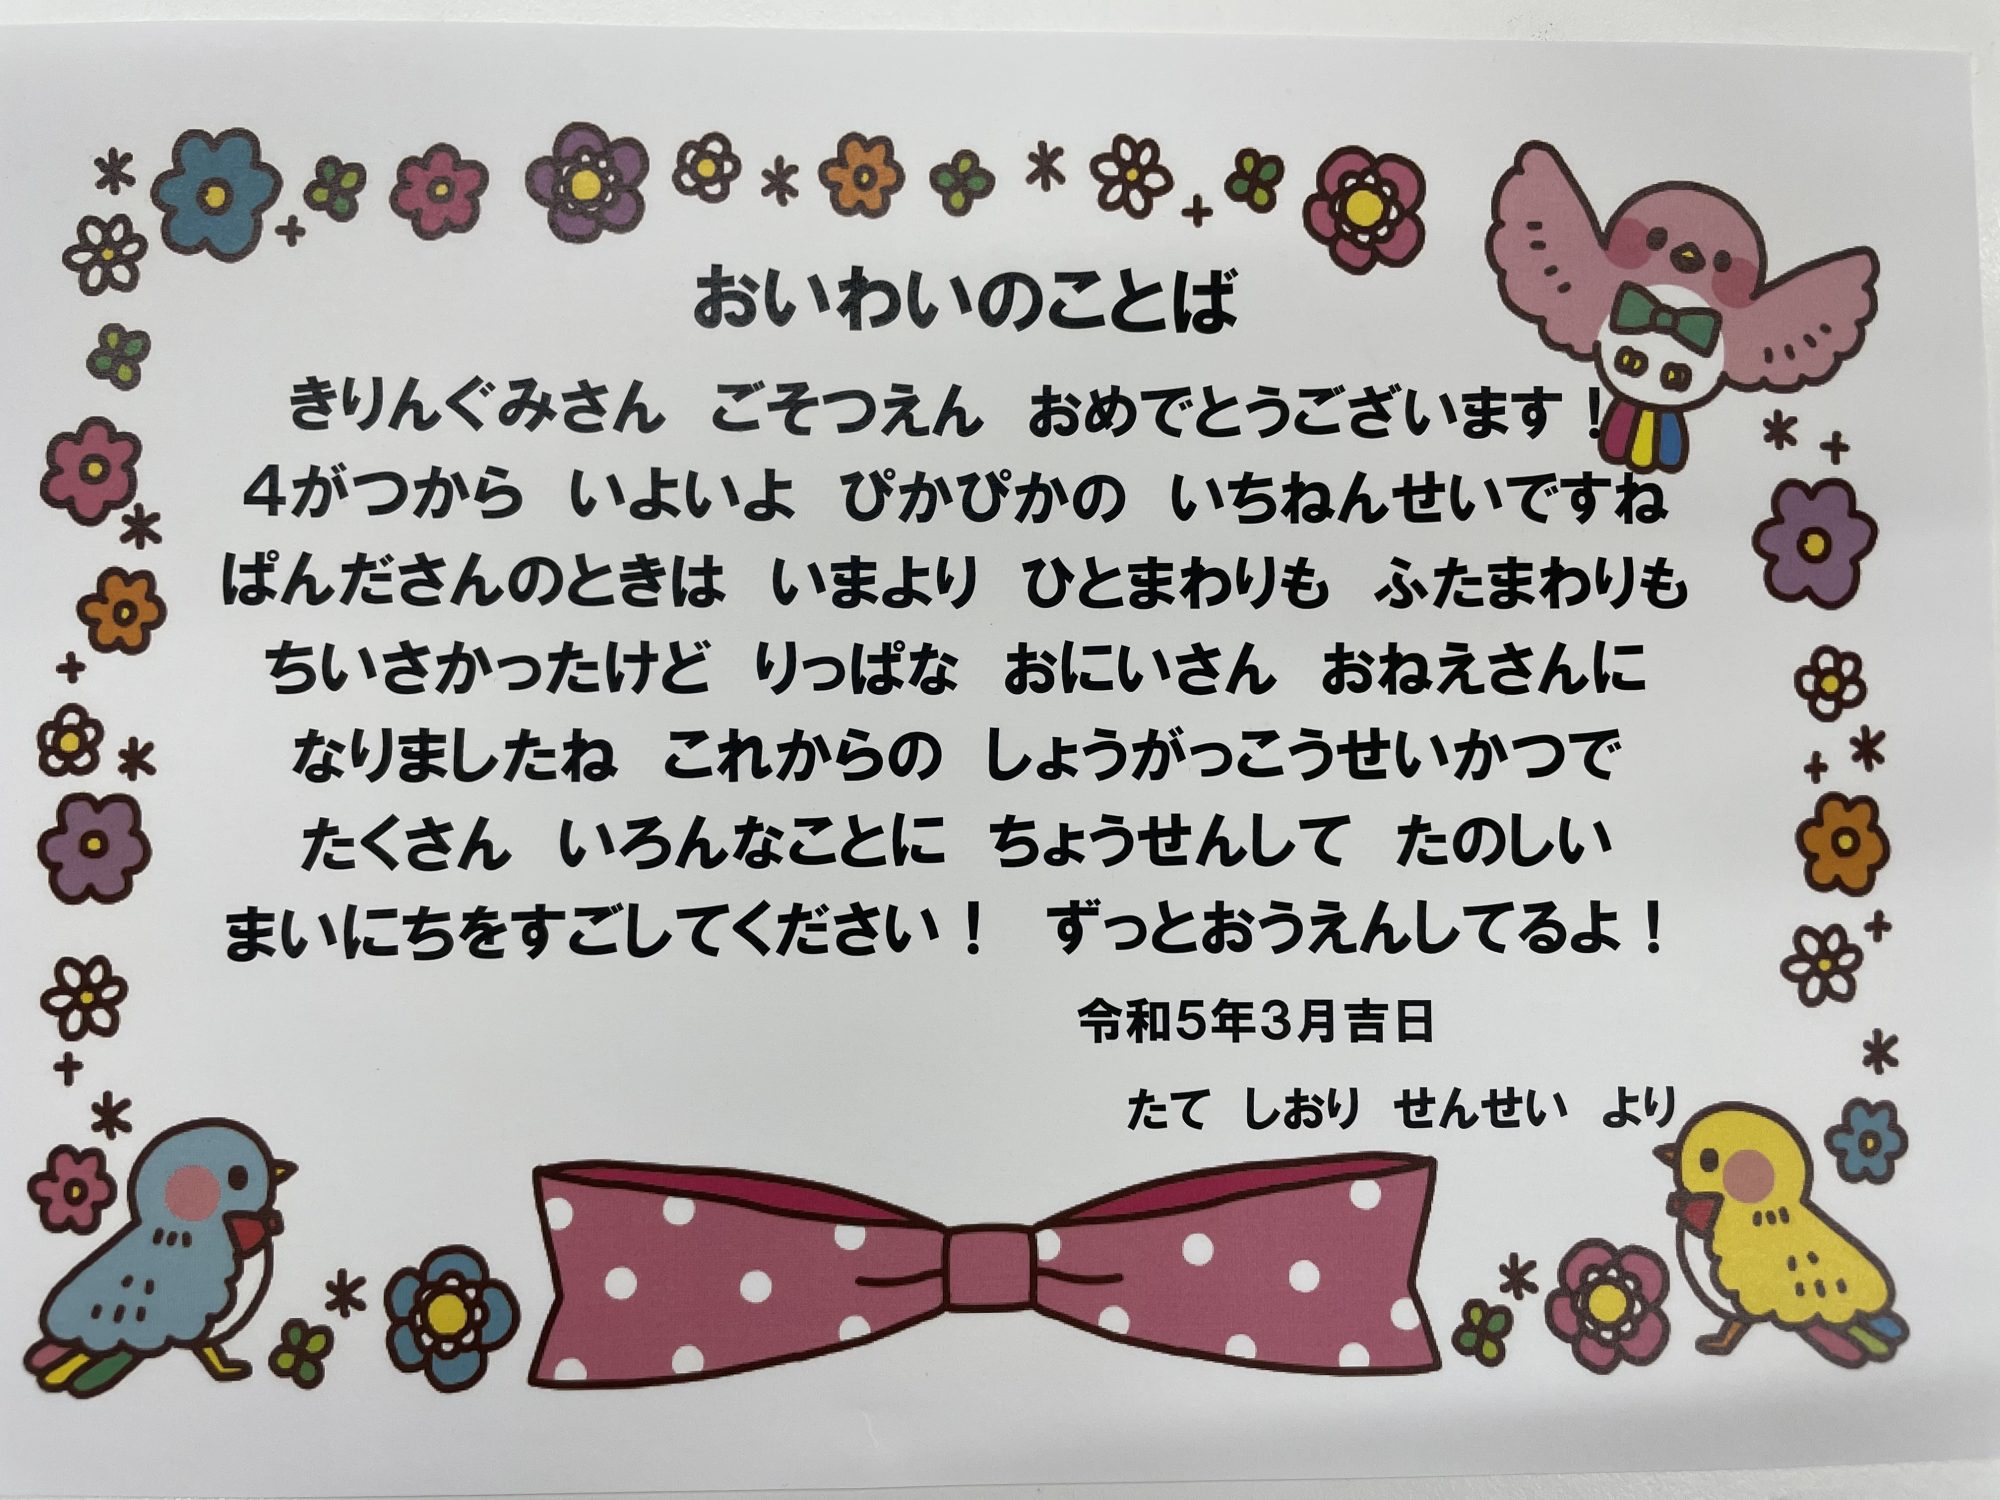 おいわいのことば
きりんぐみさん　ごそつえん　おめでとうございます！
４がつから　いよいよ　ぴかぴかの　いちねんせいですね
ぱんださんのときは　いまより　ひとまわりも　ふたまわりも
ちいさかったけど　りっぱな　おにいさん　おねえさんに
なりましたね　これからの　しょうがっこうせいかつで
たくさん　いろんなことに　ちょうせんして　たのしい
まいにちをすごしてください！　ずっとおうえんしてるよ！
令和５年３月吉日
たて　しおり　せんせい　より